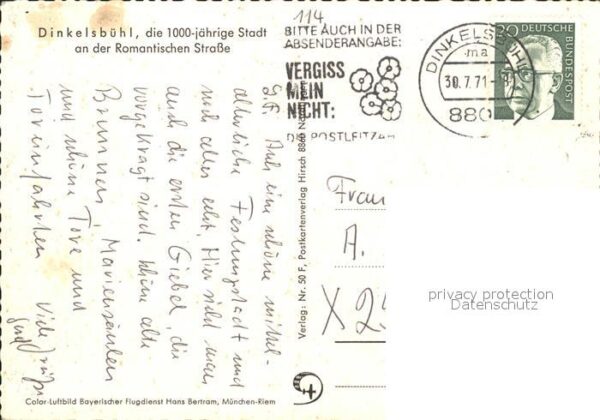 Dinkelsbühl, die 1000-jährige Stadt
an der Romantischen Straße
114
BITTE AUCH IN DER
ABSENDERANGABE:
VERGISS
MEIN
NICHT:
DIE POSTLEITZAH
DINKELSBÜHL
ma
30.7.71
880
30
DEUTSCHE
BUNDESPOST
Auch eine schöne mittel-
alterliche Festungsstadt und
noch alles echt. Hier sieht man
auch die ersten Giebel, die
vorgekragt sind. Schöne alte
Brunnen, Mariensäulen
und schöne Tore und
Toreinfahrten Viele Grüße
Verlag: Nr. 50 F, Postkartenverlag Hirsch 8860 Nördlingen
Frau
A.
X 25
privacy protection
Datenschutz
Color-Luftbild Bayerischer Flugdienst Hans Bertram, München-Riem